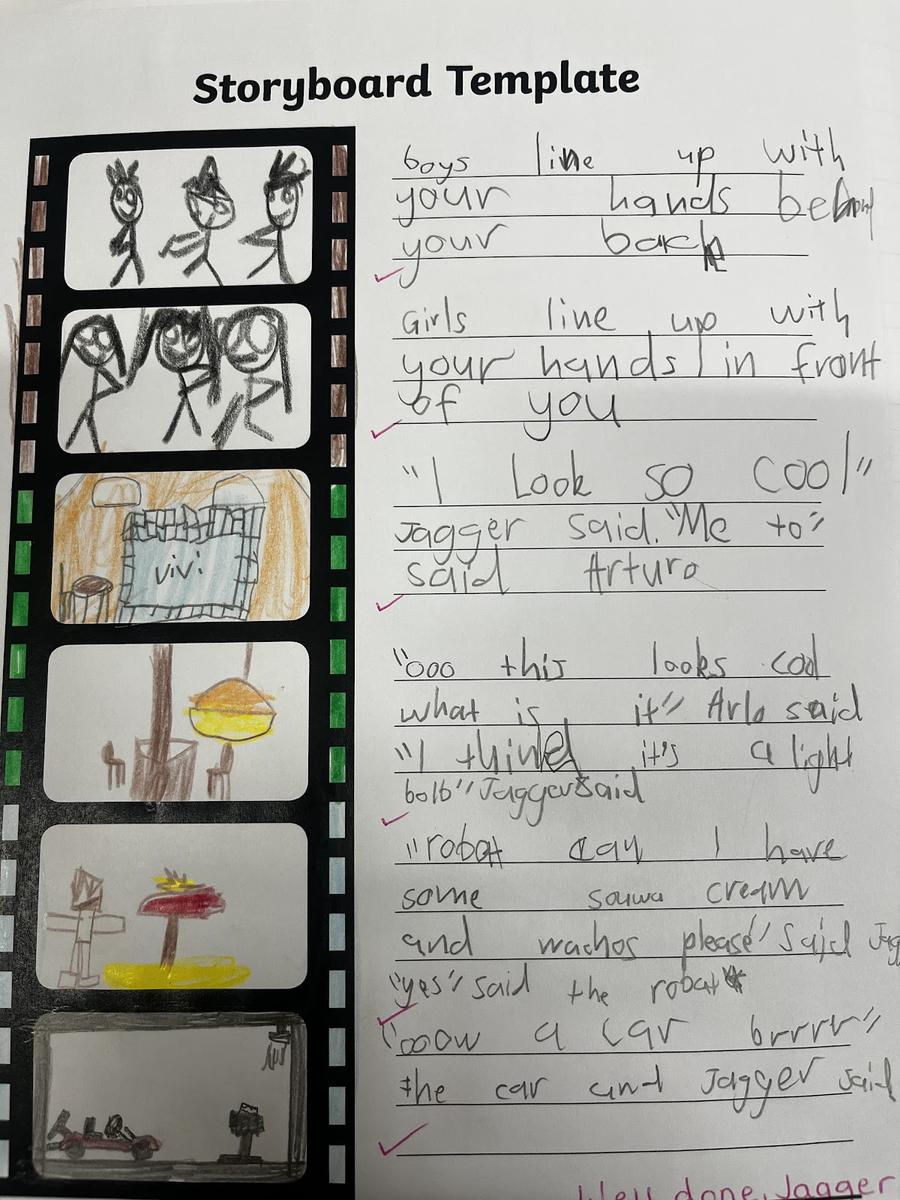 Storyboard Template
boys line up with
your hands
your back
Girls line up with
your hands in front
of you
"I Look so cool"
Jagger said. "Me to"
said Arturo
vivi
"ooo this looks cool
what is it" Arlo said
"I think it's a light
bolb" Jagger said
"robot can I have
some sauwa cream
and wachos please" said Jag
"yes" said the robat
"ooow a car brrrr"
the car and Jagger said
Well done Jagger